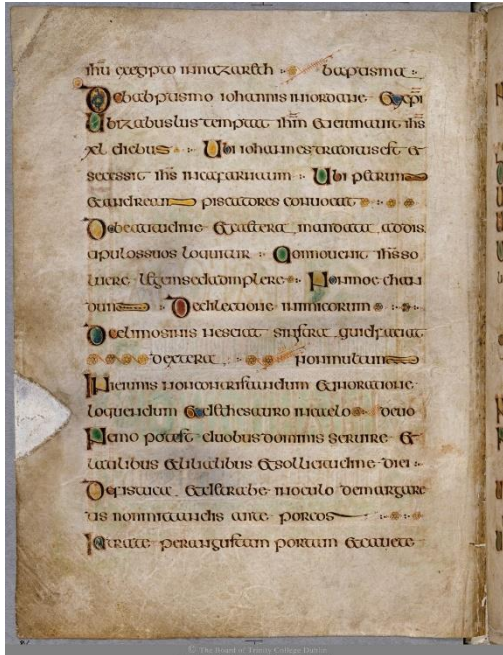 ihu exegipto innazareth baptisma
Debabptismo iohannis iniordane & xpi
Ubi zabulus temptat ihm & ieiunauit ihs
xl diebus Ubi iohannes traditus est &
secessit ihs incafarnaum Ubi petrum
& andrean piscatores conuocat
Debeatitudine & cetera mandata addis
cipulos suos loquitur Qonnouenit ihs so
luere legem sed adimplere Non moechan
dum De dilectione inimicorum
De elimosinis nesciat sinistra quid faciat
dextera non multum
In ieiunis non contristandum & in oratione
loquendum & de thesauro in caelo de uo
Nemo potest duobus dominis seruire &
uolatilibus & liliis & sollicitudine diei
De fistuca & trabe in oculo de margare
tis non mittendis ante porcos
Intrate per angustam portam & cauete
© The Board of Trinity College Dublin